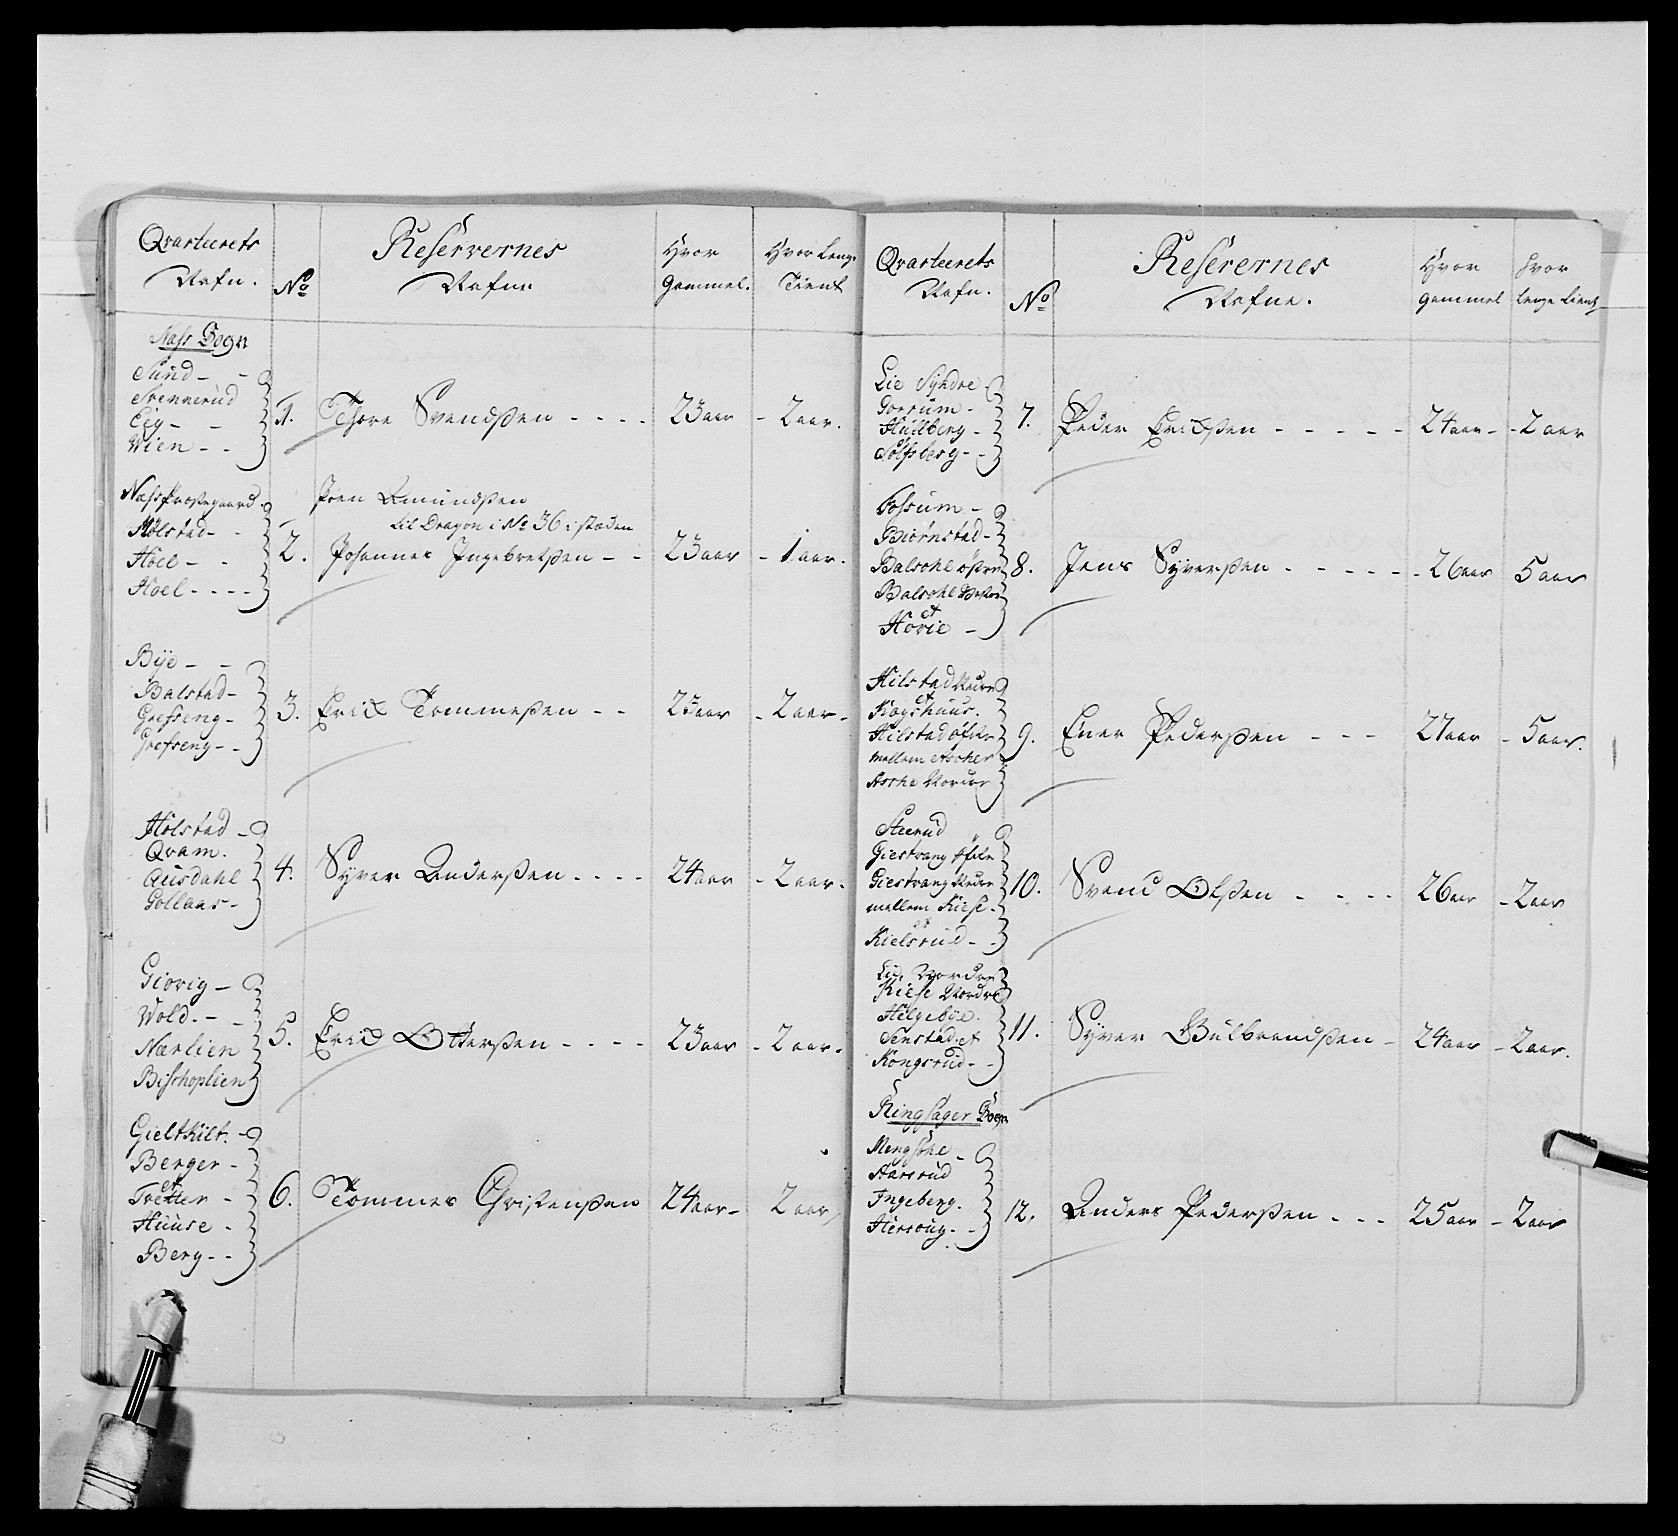 Qvarteerets
Nafn.
No
Reservernes
Nafne
Hvor
Gammel.
Hvor Lenge
Tient
Næss Sogn
Sund - -
Svennerud
Eeg - -
Wien - -
1. Thore Svendßen - - - - 23 aar - 2 aar.
Næss Præstegaard
Holstad - -
Hoel - -
Hoel - - - -
Joen Amundßen
til Dragon i No 36 i stæden
2. Johannes Ingebretßen - - 23 aar - 1 aar.
Bye - -
Balstad -
Grefseng -
Grefseng - -
3. Erick Tommeßen - - 23 aar - 2 aar -
Holstad -
Qvam.
Ausdahl
Gollaas -
4. Syver Anderßen - - - - 24 aar - 2 aar.
Giovig -
Wold. - -
Nærlien
Bischoplien
5. Erick Otterßen - - - - 23 aar - 2 aar.
Gieltkilt. -
Berger -
et
Tretter -
Huuse -
Berg - -
6. Tommes Christenßen 24 aar - 2 aar
Qvarteerets
Nafn.
No
Reserernes
Nafne.
Hvor
Gammel
Hvor
lenge tient
Lie Syndre
Gorrum -
Hullberg -
Solfsberg -
7. Peder Erichßen - - - - - 24 aar - - 2 aar
Fossum -
Biørnstad -
Balsohl østre
Balsohl Vestre
et
Hovie -
8. Jens Syverßen - - - - - - 26 aar 5 aar
Hilstad Nedre
et
Kogshuus.
Hilstad øfre
mellem Ascher
Asche Nordre
9. Ener Pederßen - - - 27 aar - 5 aar.
Steerud
Giestvang øfre
Giestvang Nedre
mellem Kiese -
et
Kielsrud - -
10. Svend Olßen - - - - 26 aar - 2 aar
Lie Nordre
Kiese Nordre
Helgeboe.
Senstad et
Kongsrud - -
11. Syver Gulbrandßen - 24 aar - 2 aar.
Ringsager Sogn
Mengshoe -
Aarerud
Ingeberg.
Hersoug - -
12. Anders Pederßen - - - 25 aar - 2 aar